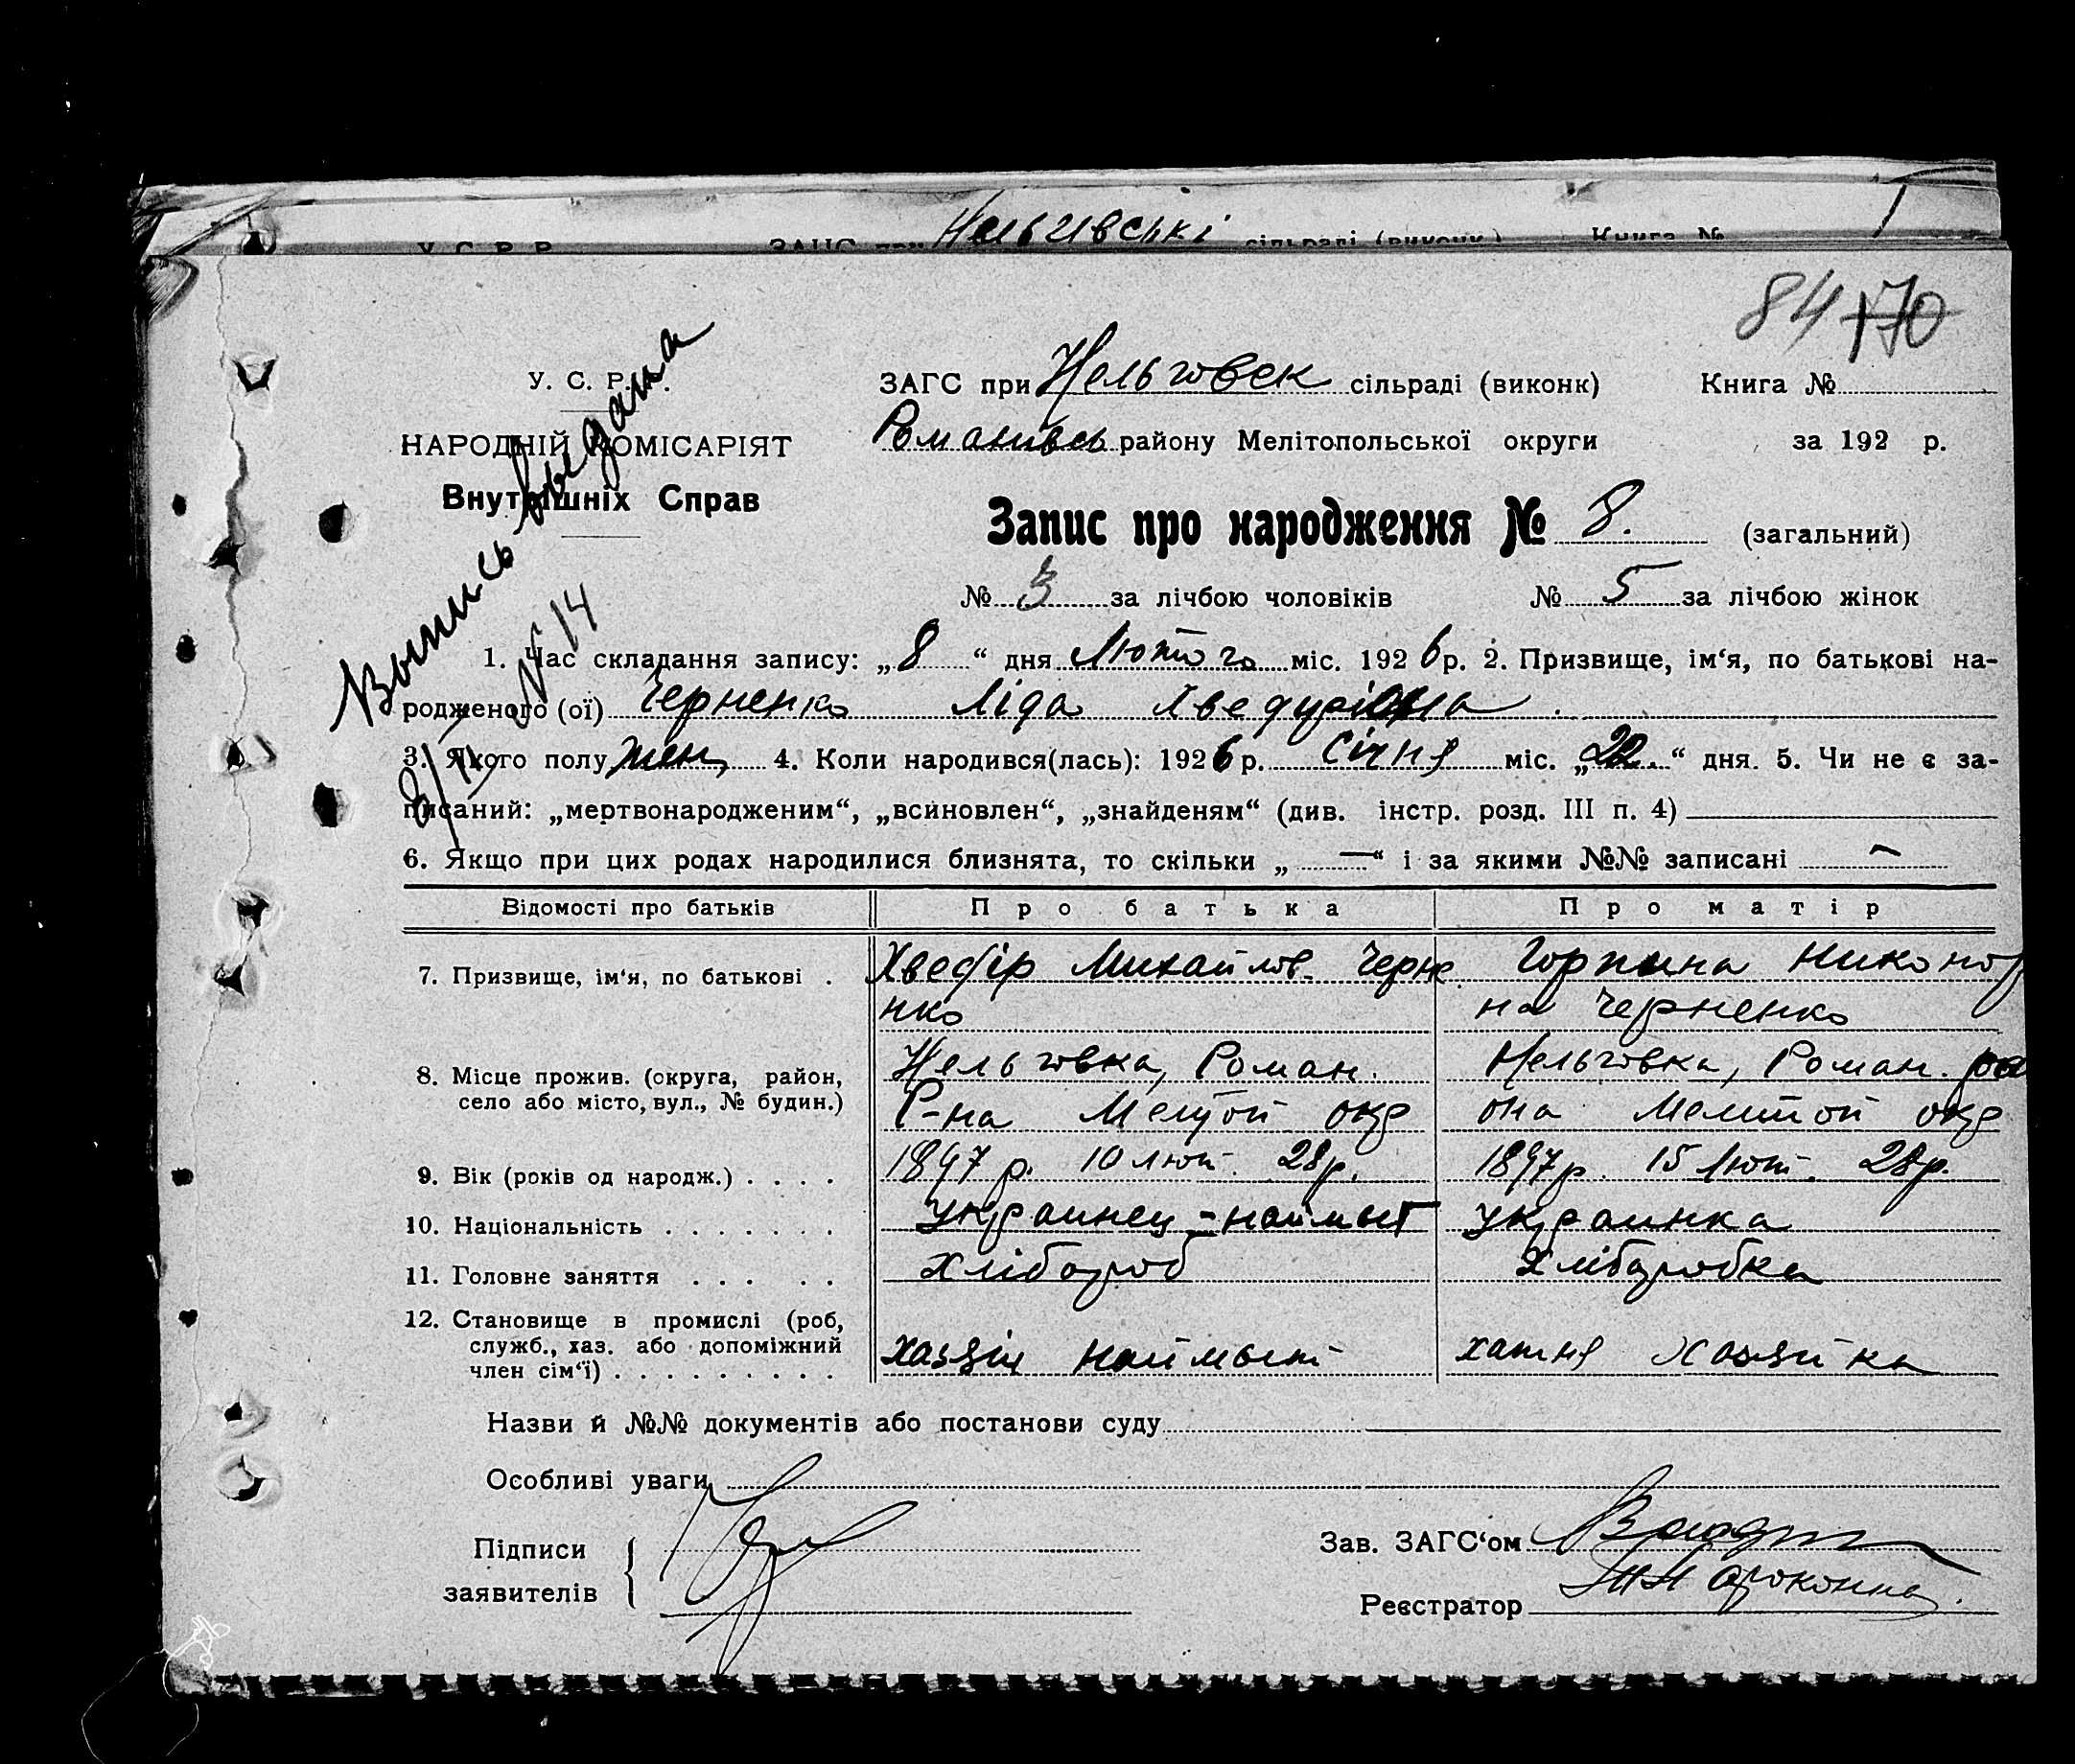 У. С. Р. Р. ЗАГС при Нельговск сільраді (виконк) Книга №
Нельгивські
1
84 170
У. С. Р. Р.
ЗАГС при Нельговск сільраді (виконк) Книга №
НАРОДНІЙ КОМІСАРІЯТ
Романивсь району Мелітопольської округи за 192 р.
Внутрішніх Справ
Запис про народження № 8. (загальний)
№ 3 за лічбою чоловіків № 5 за лічбою жінок
Выпись выдана
№ 14
1. Час складання запису: „8“ дня Лютого міс. 1926 р. 2. Призвище, ім‘я, по батькові на-
родженого (ої) Черненко Ліда
3. Якого полу жен 4. Коли народився(лась): 1926 р. Січня міс. „22.“ дня. 5. Чи не є за-
писаний: „мертвонародженим“, „всиновлен“, „знайденям“ (див. інстр. розд. III п. 4)
6. Якщо при цих родах народилися близнята, то скільки „ — “ і за якими №№ записані —
Відомості про батьків Про батька Про матір
7. Призвище, ім‘я, по батькові . Хведір Михайлов. Черне Горпина Никонор
нко на Черненко
8. Місце прожив. (округа, район, Нельговка, Роман. Нельговка, Роман. рай
село або місто, вул., № будин.) Р-на Мелітоп окр она Мелитоп окр
9. Вік (років од народж.) . . . . 1897 р. 10 лют. 28 р. 1897 р. 15 Лют. 28 р.
10. Національність . . . . . . . украинец - наймыт украинка
11. Головне заняття . . . . . хлібороб хліборобка
12. Становище в промислі (роб,
служб., хаз. або допоміжний хазяін наймыт хатня хазяйка
член сім‘ї) . . . . . . . . .
Назви й №№ документів або постанови суду
Особливі уваги
Підписи
заявителів
Зав. ЗАГС‘ом
Реєстратор